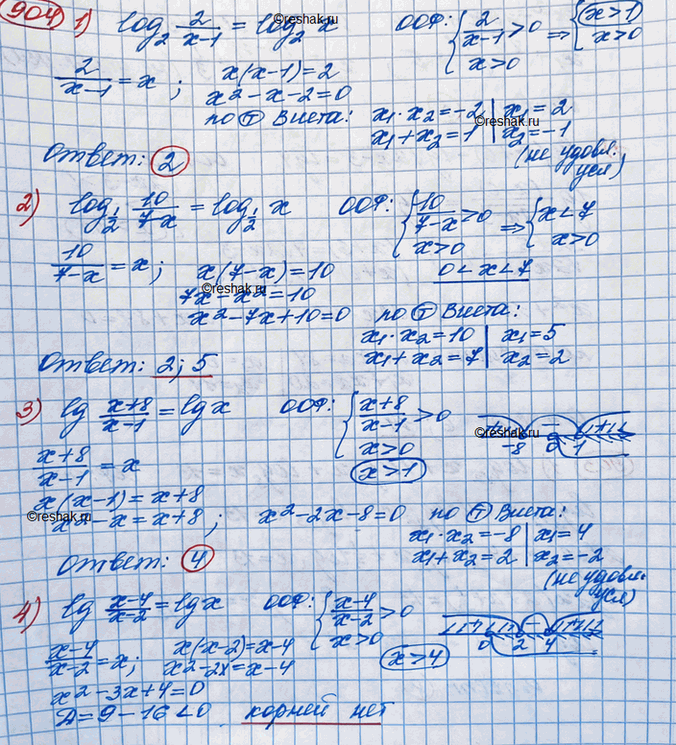 904 1) log₂ 2/(x-1) = log₂ x   ООФ: { 2/(x-1) > 0 ⇒ { (x>1)
x>0   x>0
2/(x-1) = x ;   x(x-1)=2
x²-x-2=0
по Т Виета: x₁·x₂=-2 | x₁=2
x₁+x₂=1 | x₂=-1
(не удовл.
усл)
Ответ: 2
2) log₁/₂ 10/(7-x) = log₁/₂ x   ООФ: { 10/(7-x) >0 ⇒ { x<7
x>0   x>0
10/(7-x) = x ;   x(7-x)=10   0<x<7
7x-x²=10
x²-7x+10=0   по Т Виета:
x₁·x₂=10 | x₁=5
x₁+x₂=7 | x₂=2
Ответ: 2; 5
3) lg (x+8)/(x-1) = lg x   ООФ: { (x+8)/(x-1) >0
x>0   -8 0 1
(x+8)/(x-1) = x   x>1
x(x-1)=x+8
x²-x=x+8 ;   x²-2x-8=0   по Т Виета:
x₁·x₂=-8 | x₁=4
x₁+x₂=2 | x₂=-2
(не удовл.
усл)
Ответ: 4
4) lg (x-4)/(x-2) = lg x   ООФ: { (x-4)/(x-2) >0
x>0   0 2 4
(x-4)/(x-2) = x ;   x(x-2)=x-4   x>4
x²-2x=x-4
x²-3x+4=0
Д=9-16<0   корней нет
©reshak.me
©reshak.me
©reshak.me
©reshak.me
©reshak.me